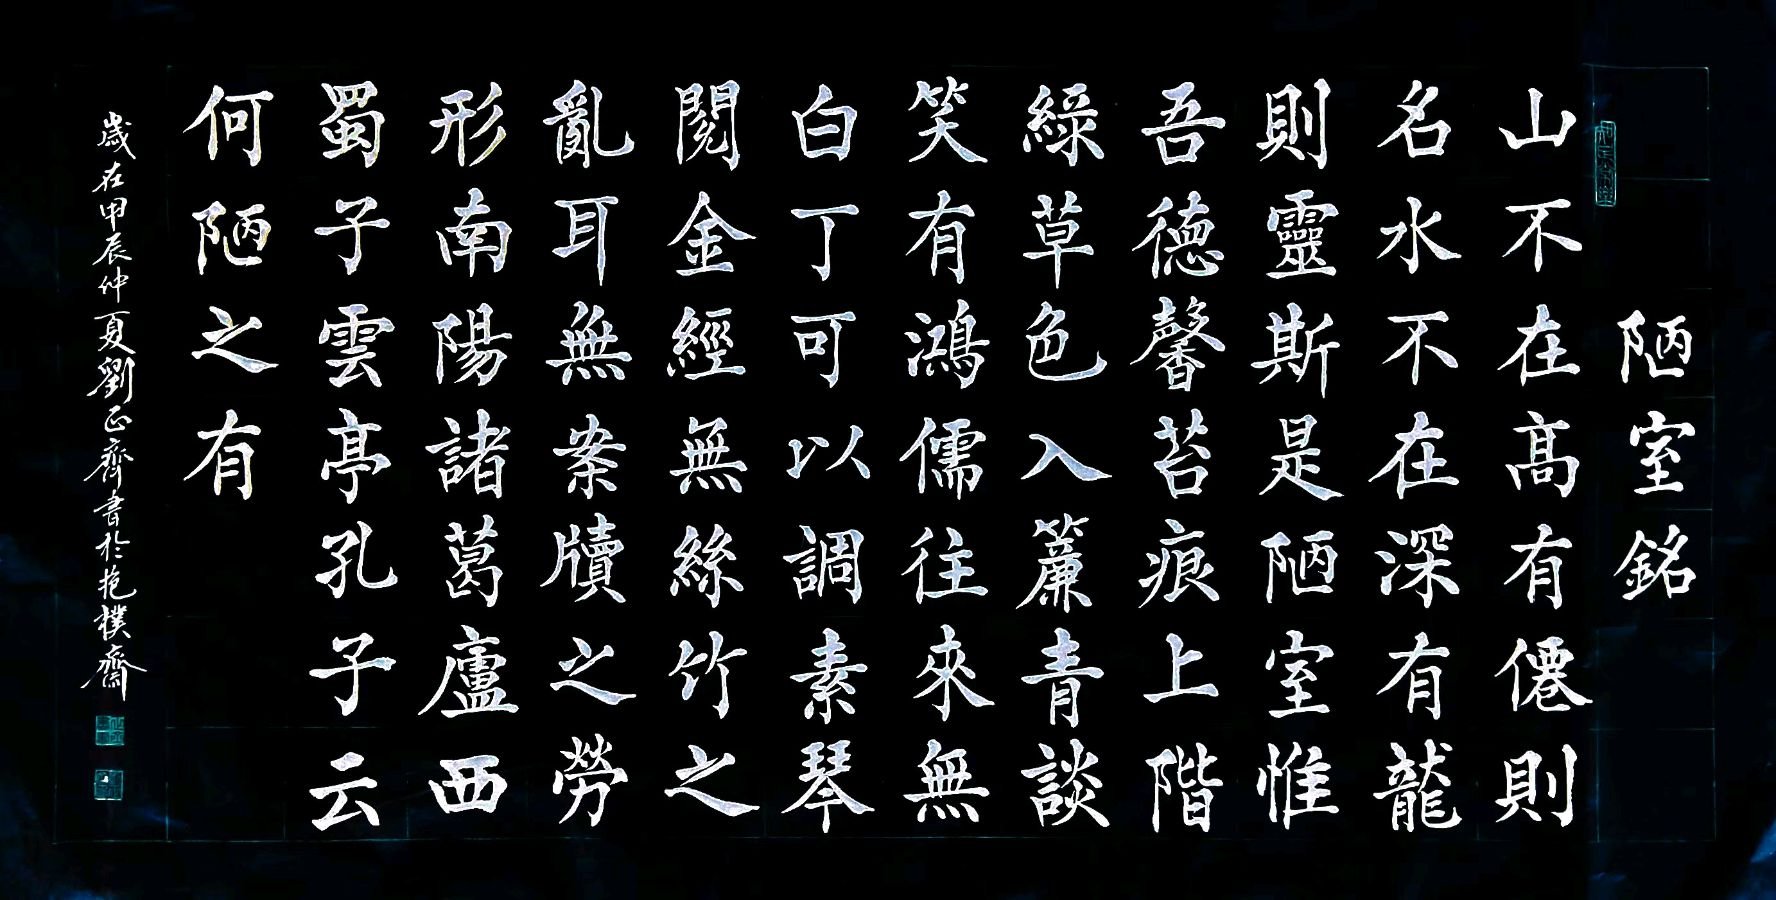 陋室銘
山不在高有僊則
名水不在深有龍
則靈斯是陋室惟
吾德馨苔痕上階
綠草色入簾青談
笑有鴻儒往來無
白丁可以調素琴
閱金經無絲竹之
亂耳無案牘之勞
形南陽諸葛廬西
蜀子雲亭孔子云
何陋之有
歲在甲辰仲夏劉正齊書於抱樸齋